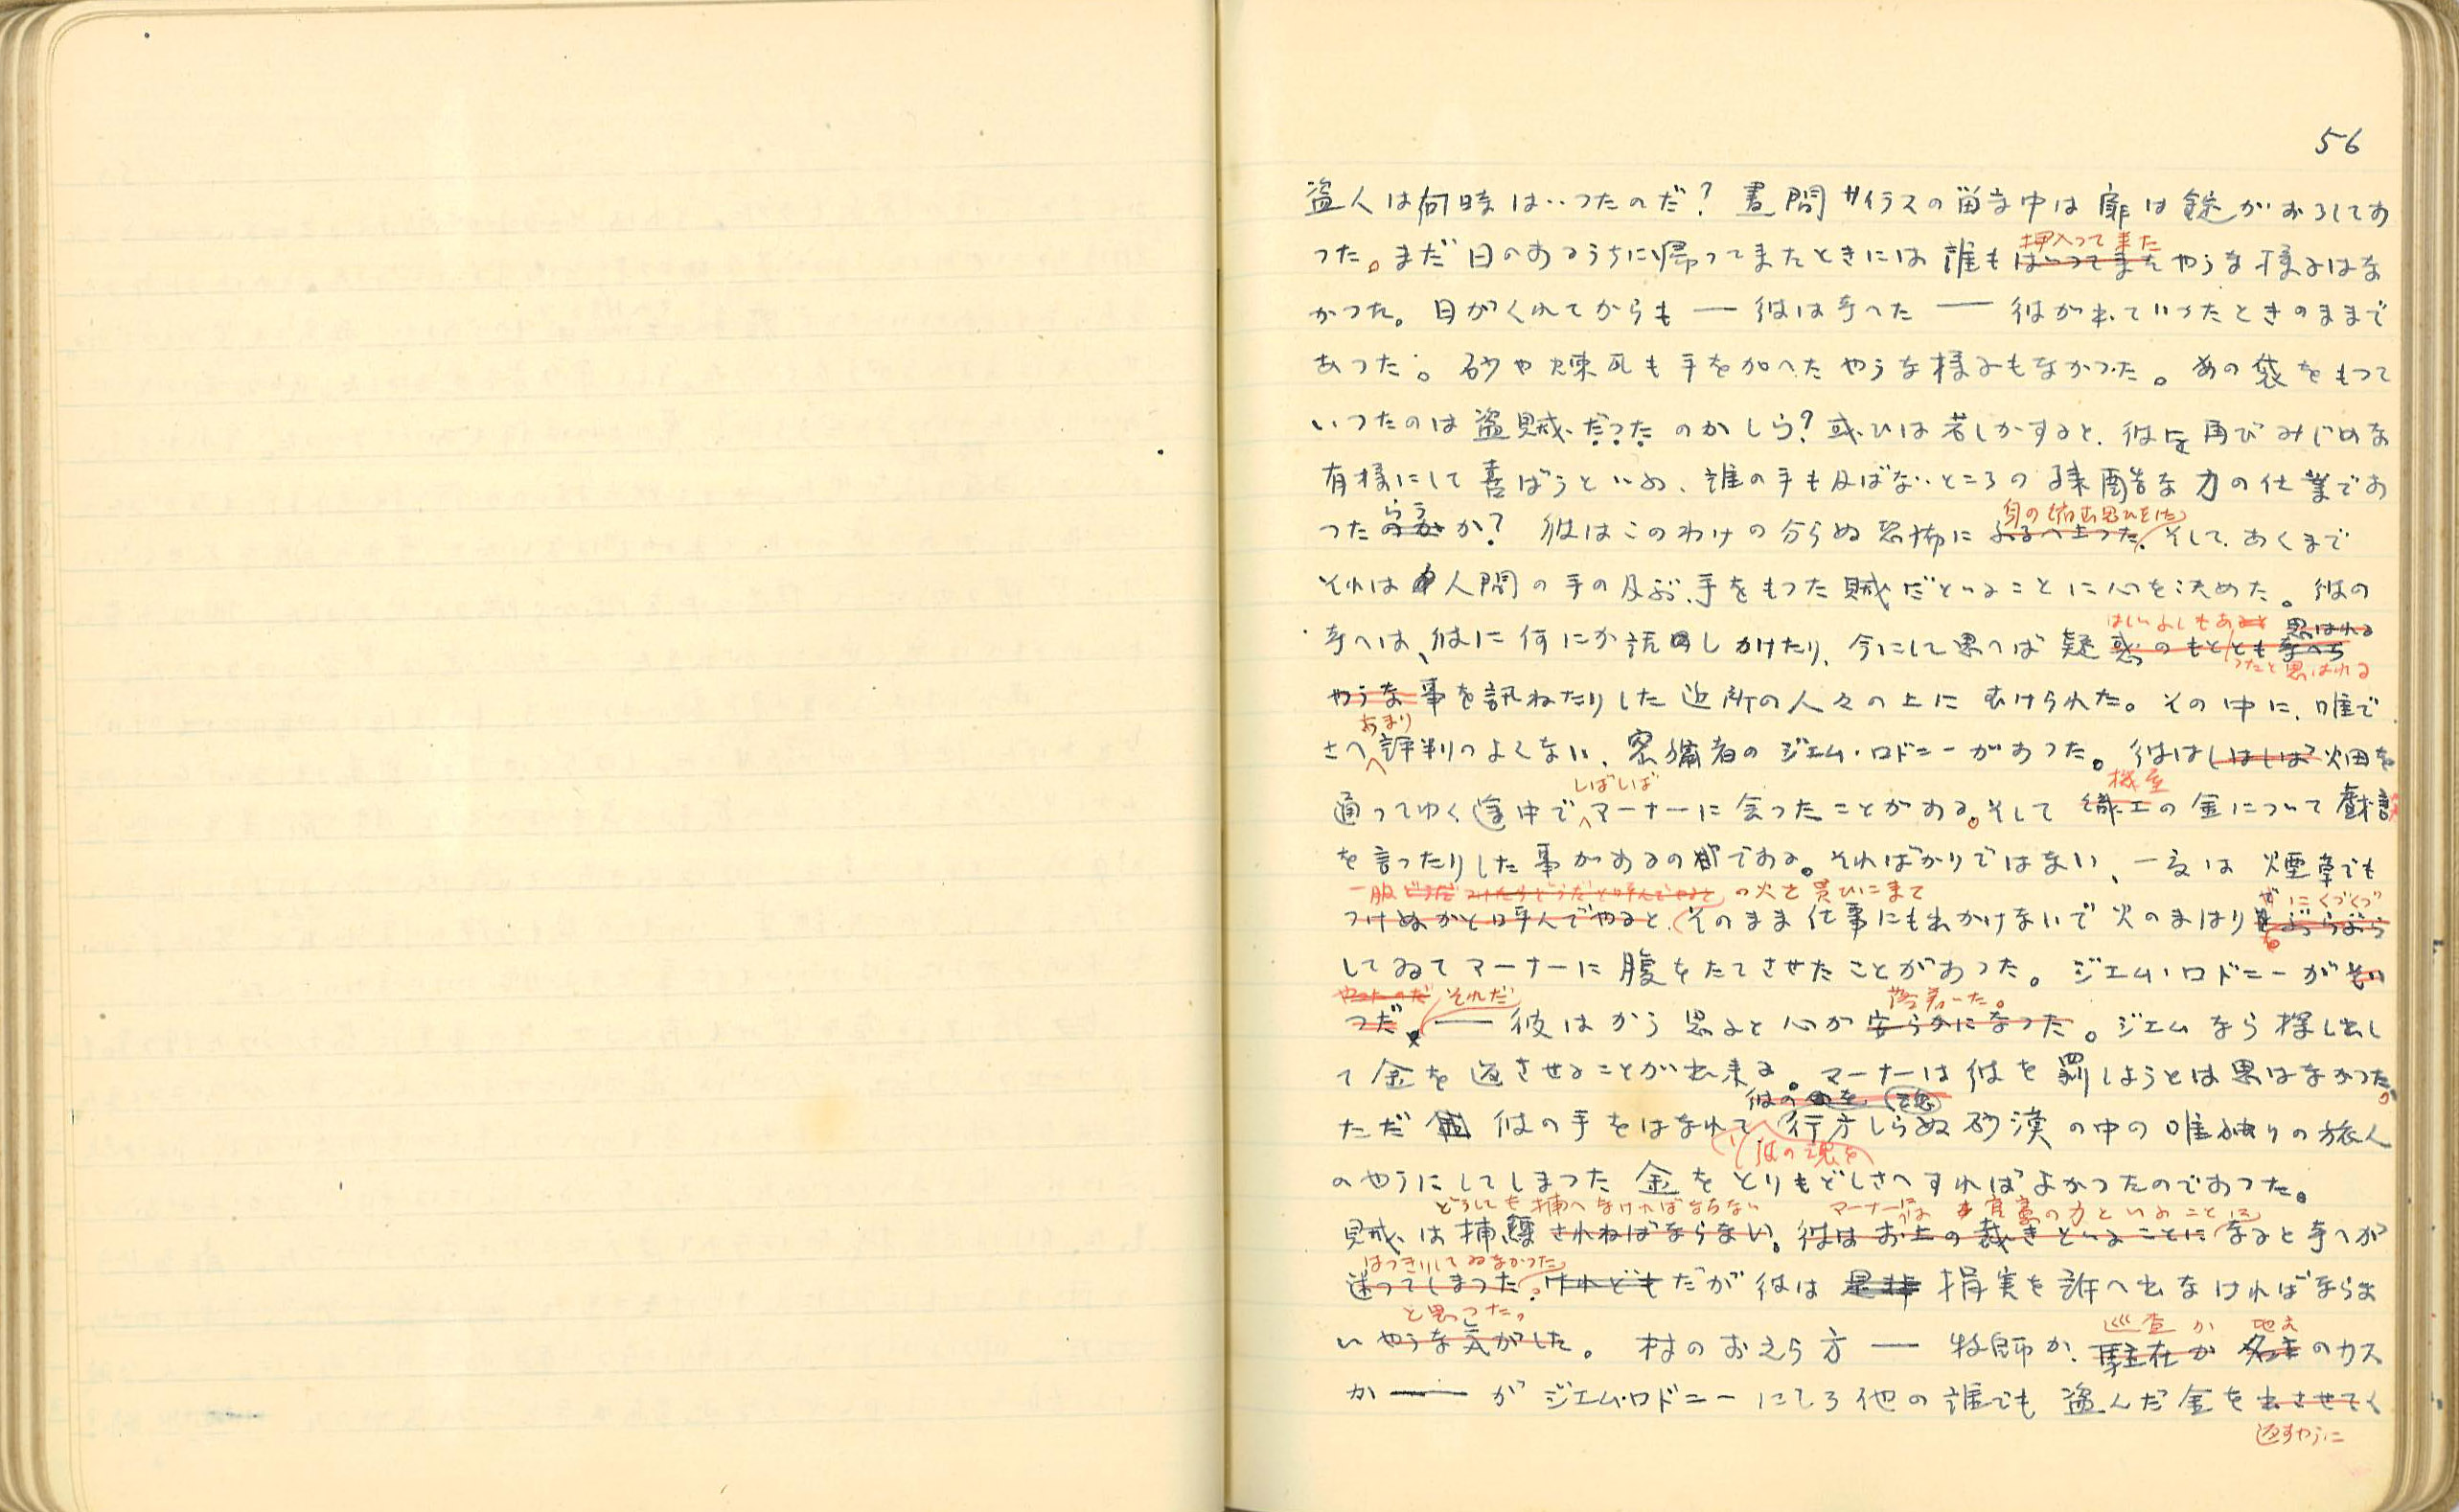 56
盗人は何時はいつたのだ? 晝間サイラスの留守中は扉は錠がおろしてあ
押入つて来た
つた。まだ日のあるうちに帰つてきたときには誰もはいつてきたやうな様子はな
かつた。日がくれてからも ― 彼は考へた ― 彼が出ていつたときのままで
あつた。砂や煉瓦も手を加へたやうな様子もなかつた。あの袋をもつて
いつたのは盗賊だつたのかしら? 或ひは若しかすると、彼を再びみじめな
有様にして喜ばうといふ、誰の手も及ばないところの残酷な力の仕業であ
らう 身の縮む思ひをした
つたのかか? 彼はこのわけの分らぬ恐怖にふるへ上つた、そして、あくまで
それは人間の手の及ぶ、手をもつた賊だといふことに心を決めた。彼の
はしいふしもあると 思はれる
考へは、彼に何にか話しかけたり、今にして思へば疑惑のもととも考へら
つたと思はれる
やうな事を訊ねたりした近所の人々の上にむけられた。その中に、唯で
あまり
さへ評判のよくない、密猟者のジエム・ロドニーがあつた。彼はしばしば畑を
しばしば 機屋
通つてゆく途中でマーナーに会つたことがある。そして織工の金について戯談
を言つたりした事があるのである。そればかりではない、一度は煙草でも
一服どうだ つけたらどうだと呼んでやると の火を貰ひにきて にぐづぐづ
つけぬかと呼んでやると、そのまま仕事にも出かけないで火のまはりをぶらぶら
してゐてマーナーに腹をたてさせたことがあつた。ジエム・ロドニーがそい
やつたのだ それだ 落着いた。
つだ ― 彼はかう思ふと心が安らかになつた。ジエムなら探し出し
て金を返させることが出来る。マーナーは彼を罰しようとは思はなかつた。
彼の 魂
ただ 彼の手をはなれて、行方しらぬ砂漠の中の唯独りの旅人
彼の魂を
のやうにしてしまつた金をとりもどしさへすればよかつたのであつた。
どうしても捕へなければならない マーナーには 官憲の力といふことに
賊は捕縛されねばならない。彼はお上の裁きといふことになると考へが
はつきりしてゐなかつた
迷つてしまつた。けれどもだが彼は是非損失を訴へ出なければならな
と思つた。 巡査か 地主
いやうな気がした。村のおえら方 ― 牧師か、駐在か名主のカス
か ― がジエム・ロドニーにしろ他の誰でも盗んだ金を出させてく
返すやうに